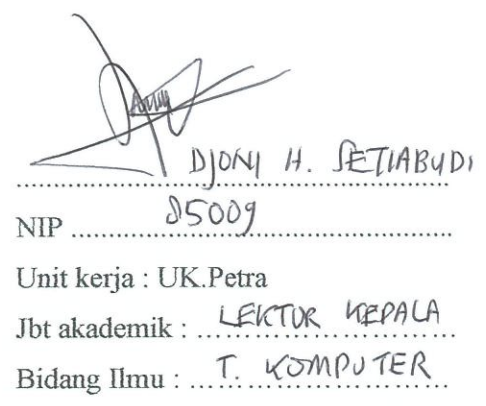 DJONY H. SETIABUDI
NIP 85009
Unit kerja : UK.Petra
Jbt akademik : LEKTOR KEPALA
Bidang Ilmu : T. KOMPUTER